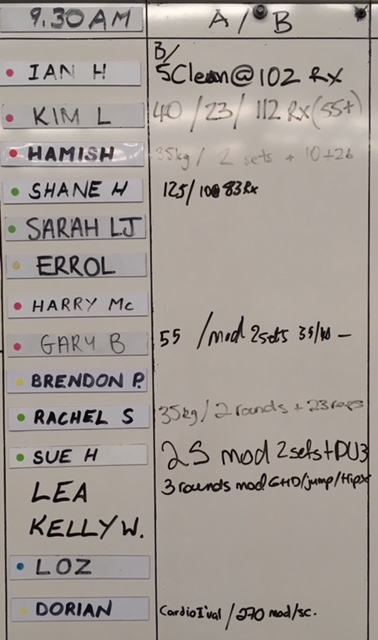 9.30AM A / B
B/
IAN H 5Clean@102 Rx
KIM L 40 /23/ 112 Rx (55+)
HAMISH 35kg / 2 sets + 10+26
SHANE H 125/ 83Rx
SARAH LJ
ERROL
HARRY Mc
GARY B 55 /mod 2sets
BRENDON P.
RACHEL S 35kg/ 2 rounds + 23reps
SUE H 25 mod 2sets+DU3
LEA 3 rounds mod GHD/jump/
KELLY W.
LOZ
DORIAN Cardio I'val / 270 mod/sc.